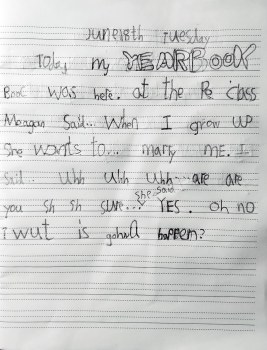 June 18th Tuesday
Today my YEARBOOK
Book was here. at the Pe class
Meagan Said... When I grow UP
She wants to... marry ME. I
said.. Uhh Uhh Uhh... are are
you sh sh sure... She said YES. oh no
! wut is gonna happen?